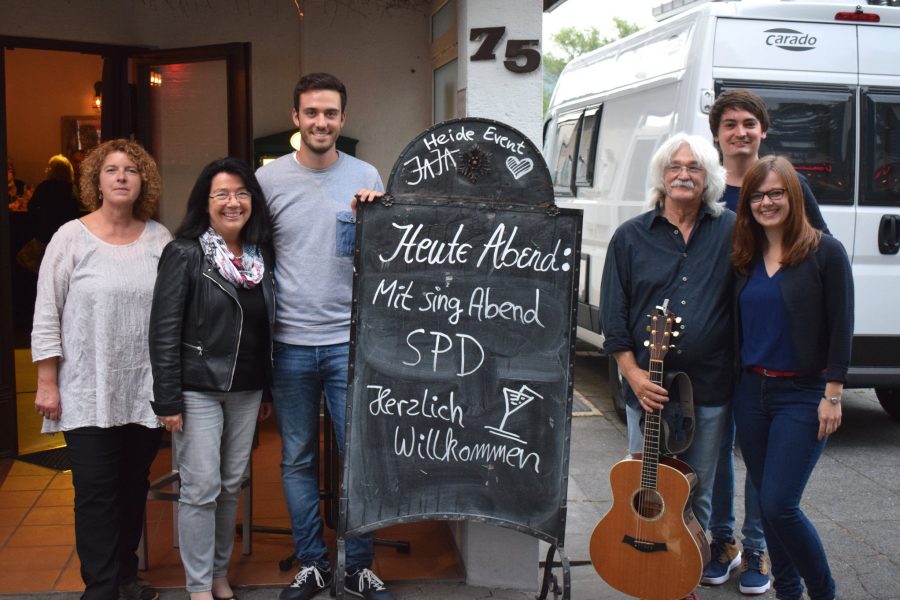 75
carado
Heide Event
JAJA
Heute Abend:
Mit sing Abend
SPD
Herzlich
Willkommmen